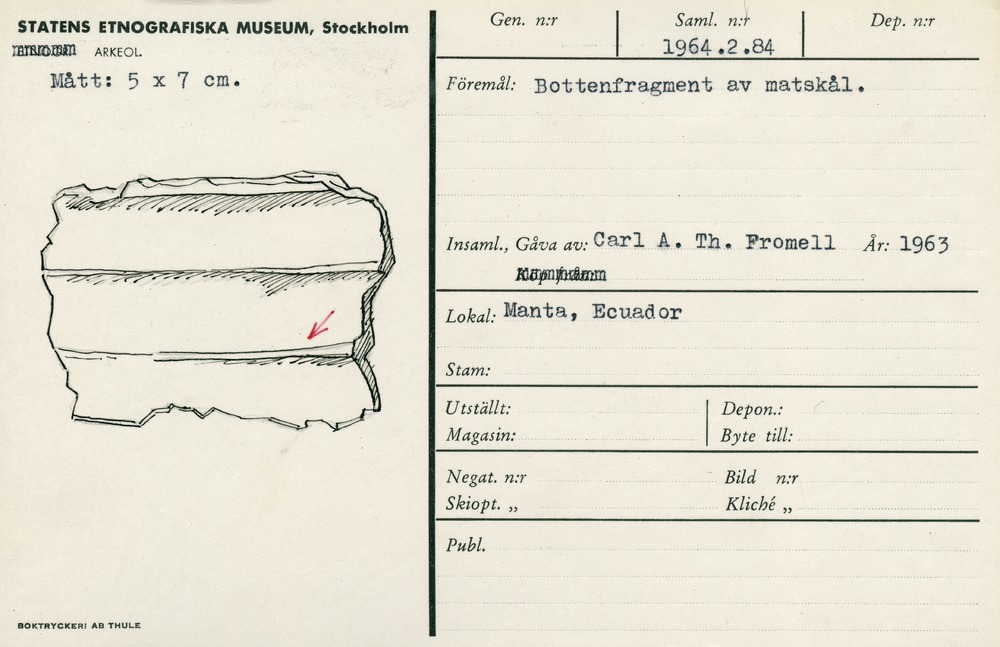 STATENS ETNOGRAFISKA MUSEUM, Stockholm
ARKEOL.
Mått: 5 x 7 cm.
Gen. n:r
Saml. n:r
1964.2.84
Dep. n:r
Föremål: Bottenfragment av matskål.
Insaml., Gåva av: Carl A. Th. Fromell År: 1963
Lokal: Manta, Ecuador
Stam:
Utställt:
Depon.:
Magasin:
Byte till:
Negat. n:r
Bild n:r
Skiopt. „
Kliché „
Publ.
BOKTRYCKERI AB THULE